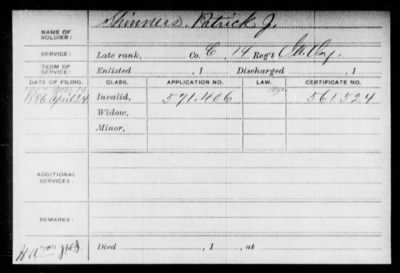 NAME OF SOLDIER: Shinners Patrick J.
SERVICE: Late rank, Co. C, 14 Reg't
TERM OF SERVICE: Enlisted , 1 Discharged , 1
DATE OF FILING. CLASS. APPLICATION NO. LAW. CERTIFICATE NO.
1886 April 24 Invalid, 571.406 561524
Widow,
Minor,
ADDITIONAL SERVICES:
REMARKS:
Died , 1 , at